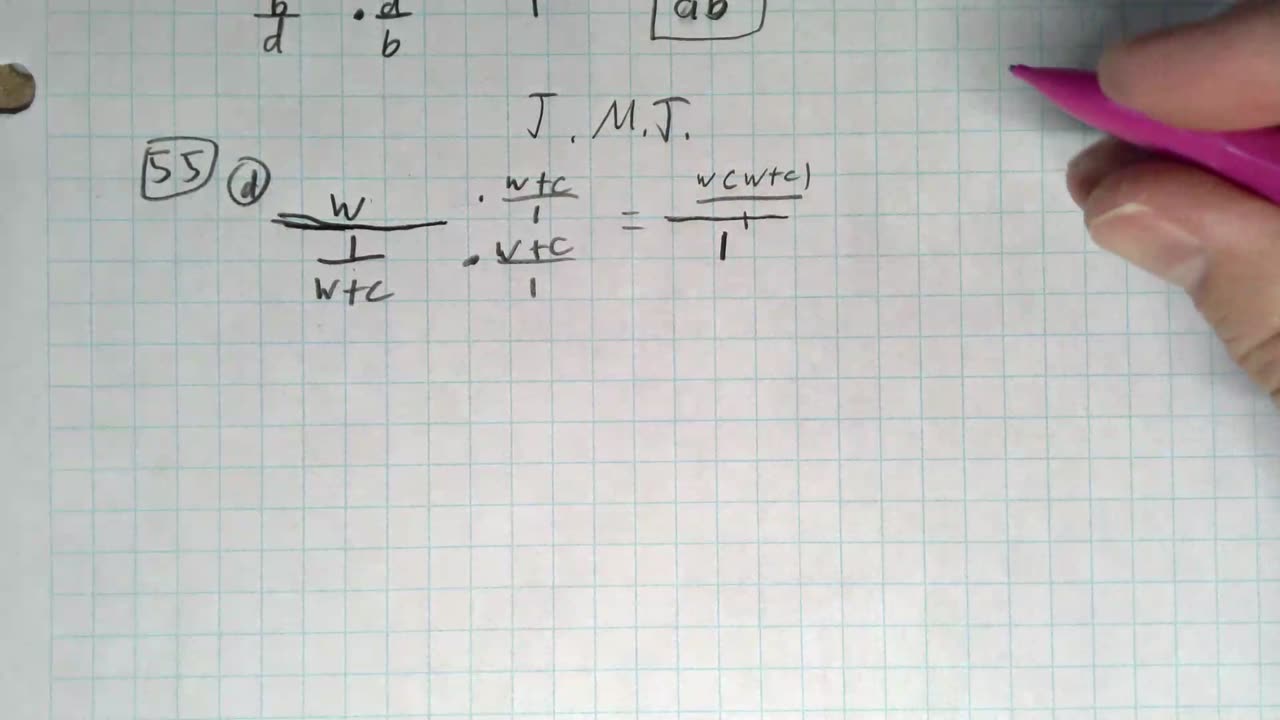 b/d · d/b 1 ab
J.M.J.
55 d w/(1/(w+c)) · ((w+c)/1)/((w+c)/1) = (w(w+c)/1)/1